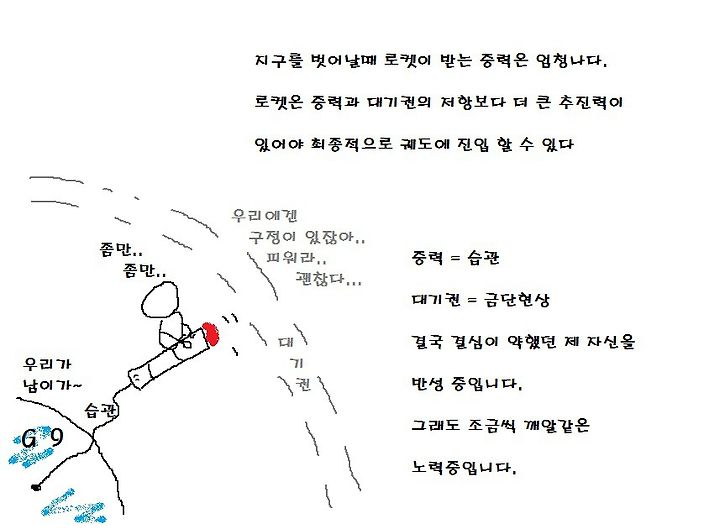 지구를 벗어날때 로켓이 받는 중력은 엄청나다.
로켓은 중력과 대기권의 저항보다 더 큰 추진력이
있어야 최종적으로 궤도에 진입 할 수 있다
우리에겐
구정이 있잖아..
피워라..
괜찮다...
좀만..
좀만..
중력 = 습관
대기권 = 금단현상
결국 결심이 약했던 제 자신을
반성 중입니다.
그래도 조금씩 깨알같은
노력중입니다.
대
기
권
우리가
남이가~
습관
G 9